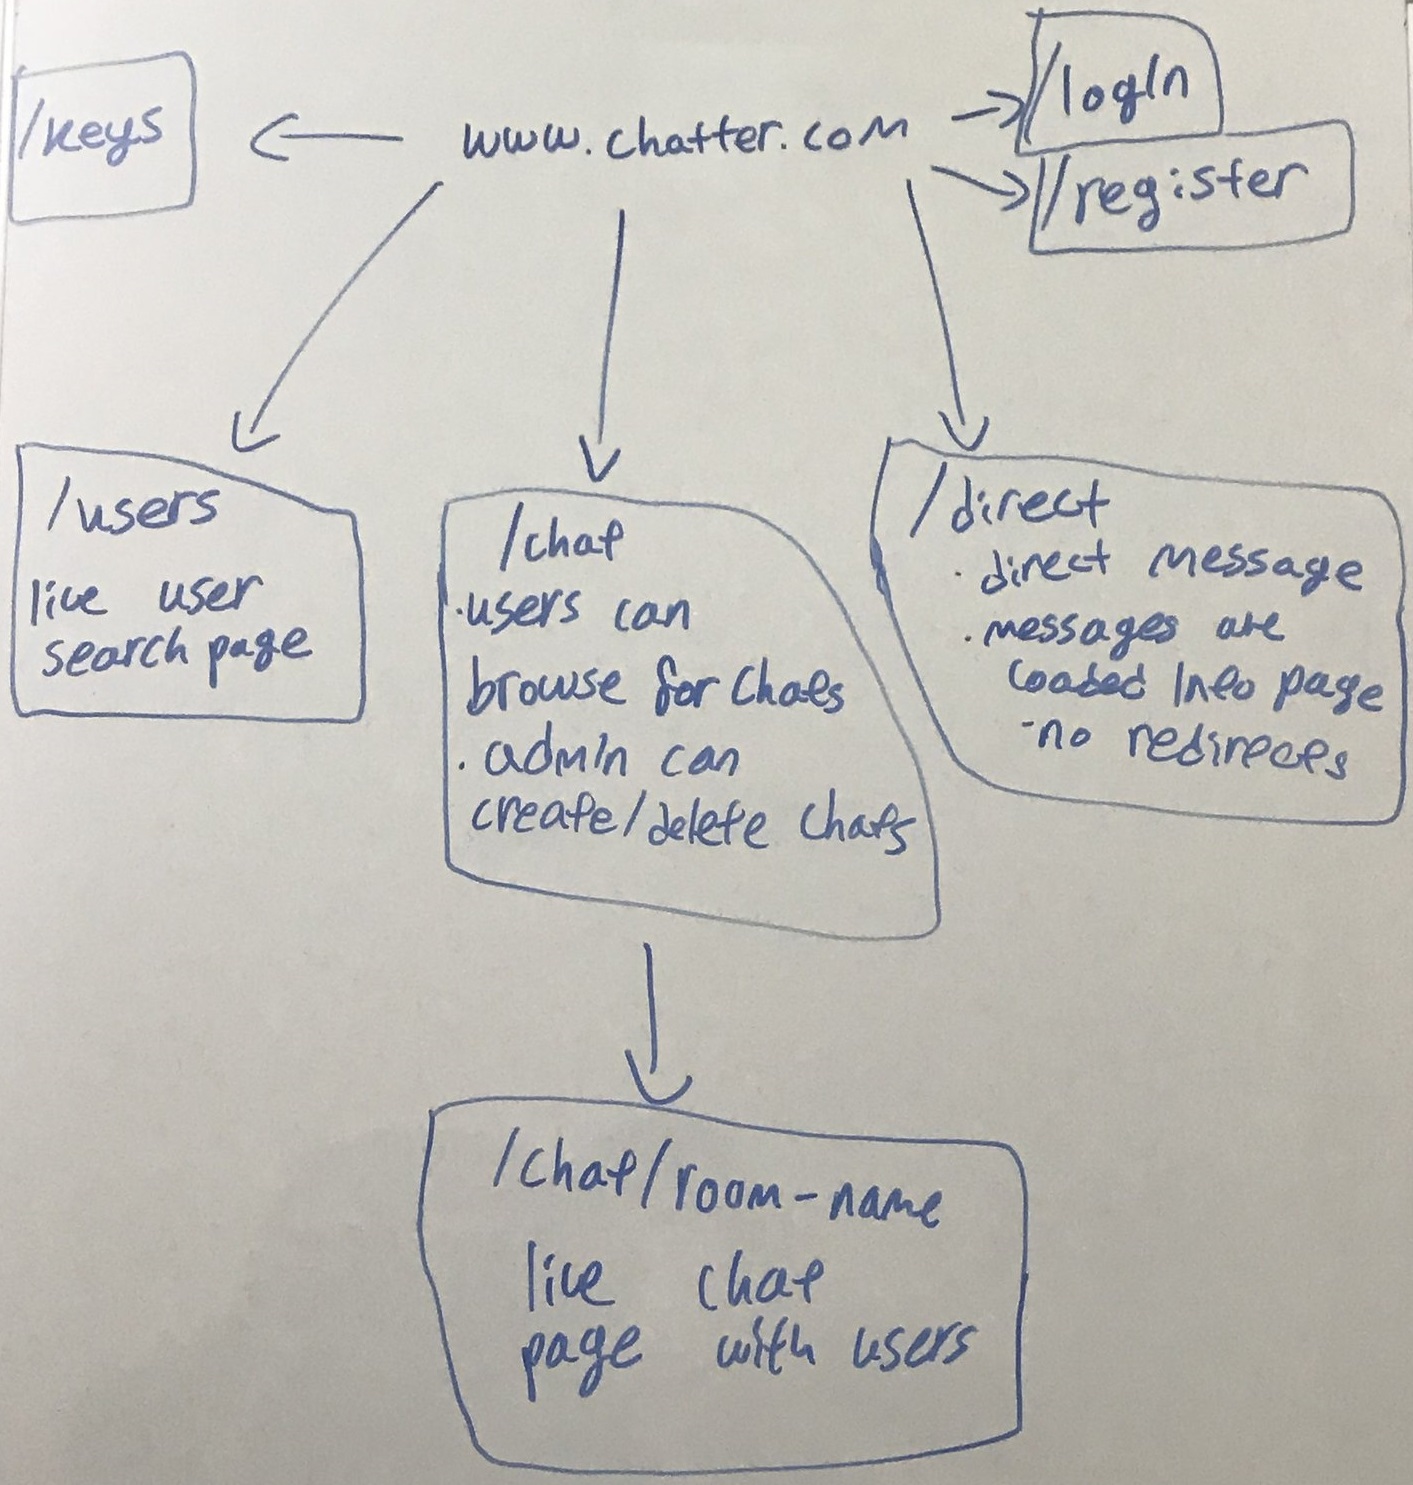 /keys
www.chatter.com
/login
/register
/users
live user
search page
/chat
·users can
browse for chats
· admin can
create/delete chats
/direct
· direct message
· messages are
loaded into page
-no redirects
/chat/room-name
live chat
page with users